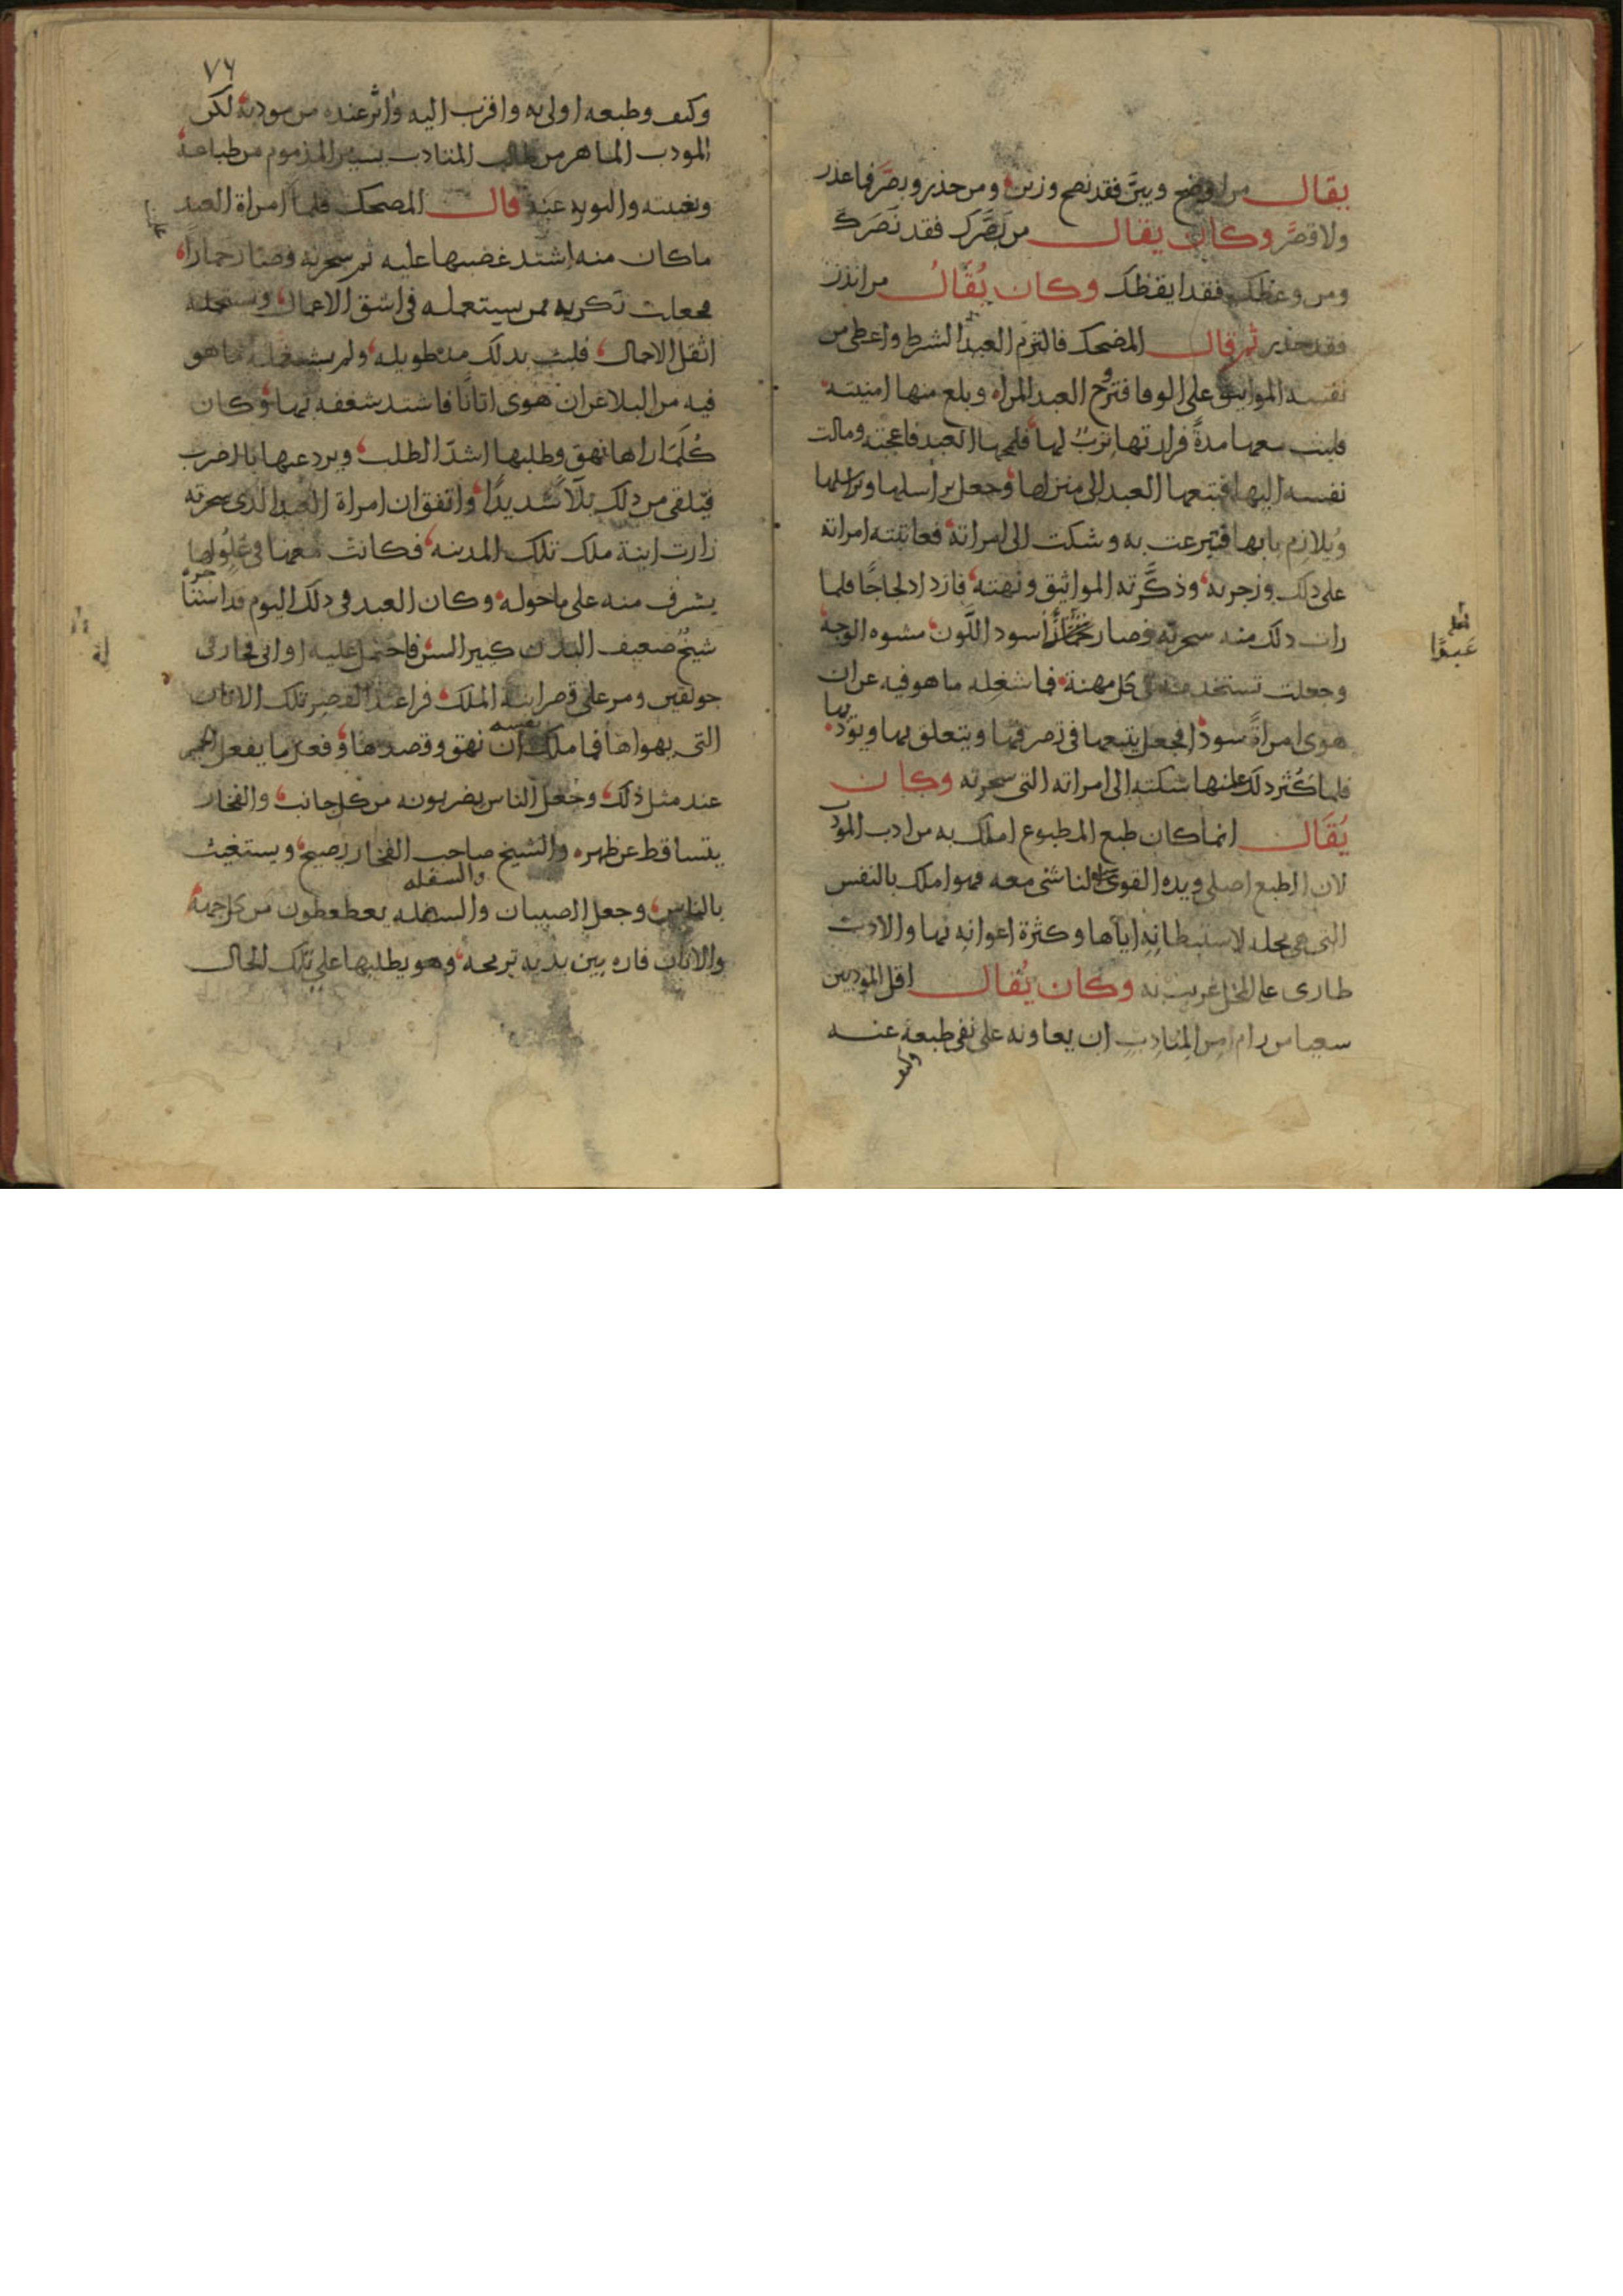 يقال من اوضح وبيَّن فقد نصح وزين ومن حذر وبصَّر فما غدر
ولا قصَّر وكان يقال من بَصَّرك فقد نَصَرك
ومن وعظك فقد ايقظك وكان يُقَالُ من انذر
فقد حذر ثم قال المضحك فالتزم العبد الشرط واعطى من
نفسه المواثيق على الوفا فتزوج العبد المراه وبلغ منها امنيته
فلبث معها مدةً فزارتها تِربٌ لها فلمحها العبد فاعجبته ومالت
نفسه اليها فتبعها العبد الى منزلها وجعل يراسلها
ويُلازم بابها فتبرعت به وشكت الى امراته فعاتبته امراته
على ذلك وزجرته وذكَّرته المواثيق ونهته فازداد لجاجًا فلما
رات ذلك منه سحرته فصار اسود اللَّون مشوه الوجه
وجعلت تستخدمه في كل مهنة فما شغله ما هو فيه عن ان
هوى امراةً سودا فجعل يتبعها في تصرفها ويتعلق بها ويوذيها
فلما كَثُر ذلك عليها شكته الى امراته التي سحرته وكان
يُقَال انما كان طبع المطبوع املك به من ادب المودب
لان الطبع اصلي وبده القوى الناشى معه فهو املك بالنفس
التي هي محله لاستبطانِهِ اياها وكثرة اعوانِه بها والادب
طارى على المحل غريب به وكان يُقال اقل المودبين
سعيا من رام من المتادب ان يعاونه على نفي طبعه عنه
وكيف
لعله
عبدًا
٧٦
وكيف وطبعه اولى به واقرب اليه واثر عنده من مودبه لكن
المودب الماهر من طالب المتادب بستر المذموم من طباعه
وتغييبه والتوريه عنه قال المضحك فلما امراة العبد
ما كان منه اشتد غضبها عليه ثم سحرته فصار حمارًا
فجعلت تكريه ممن يستعمله في اشق الاعمال
اثقل الاحمال فلبث بذلك مدة طويله ولم يشغله ما هو
فيه من البلا عن ان هوى اتانًا فاشتد شغفه بها وكان
كُلَّمَا راها نهق وطلبها اشدّ الطلب ويردعها بالضرب
فيَلقى من ذلك بلآً شديدًا واتفق ان امراة العبد الذي سحرته
زارت ابنة ملك تلك المدينه فكانت معها في عُلوٍ لها
يشرف منه على ما حوله وكان العبد في ذلك اليوم قد استاجره
شيخٌ ضعيف البدن كبير السن فاحتمل عليه اواني فخار في
جولقين ومر على قصر ابنة الملك فراى عند القصر تلك الاتان
التي يهواها فما ملك نفسه ان نهق وقصدها وفعل ما يفعل الحمر
عند مثل ذلك وجعل الناس يضربونه من كل جانب والفخار
يتساقط عن ظهره والشيخ صاحب الفخار يصيح ويستغيث
والسفله
بالناس وجعل الصبيان والسفله يعطعطون من كل جهة
والاتان فاره بين يديه ترمحه وهو يطلبها على تلك الحال